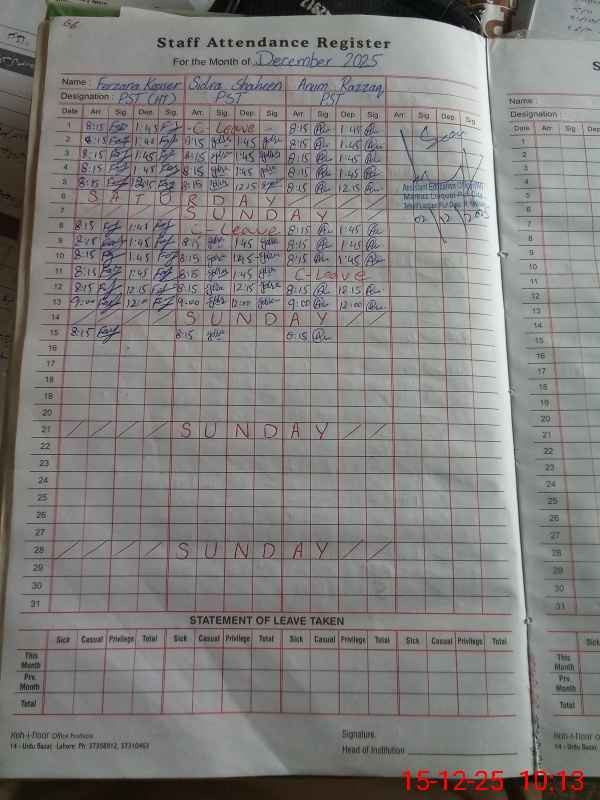 66
Staff Attendance Register
For the Month of December 2025
Name : Farzana Kouser Sidra Shaheen Anum Razzaq
Designation : PST (HT) PST PST
Date Arr. Sig. Dep. Sig. Arr. Sig. Dep. Sig. Arr. Sig. Dep. Sig. Arr. Sig. Dep. Sig.
1 8:15 1:45 - C - Leave - 8:15 1:45
2 8:15 1:45 8:15 1:45 8:15 1:45
3 8:15 1:45 8:15 1:45 8:15 1:45
4 8:15 1:45 8:15 1:45 8:15 1:45
5 8:15 12:15 8:15 12:15 8:15 12:15
6 SATURDAY
7 SUNDAY
8 8:15 1:45 C-Leave 8:15 1:45
9 8:15 1:45 8:15 1:45 8:15 1:45
10 8:15 1:45 8:15 1:45 8:15 1:45
11 8:15 1:45 8:15 1:45 C-Leave
12 8:15 12:15 8:15 12:15 8:15 12:15
13 9:00 12:00 9:00 12:00 9:00 12:00
14 SUNDAY
15 8:15 8:15 8:15
16
17
18
19
20
21 SUNDAY
22
23
24
25
26
27
28 SUNDAY
29
30
31
STATEMENT OF LEAVE TAKEN
Sick Casual Privilege Total Sick Casual Privilege Total Sick Casual Privilege Total Sick Casual Privilege Total
This Month
Prv. Month
Total
Koh-i-Noor Office Products
14 - Urdu Bazar, Lahore. Ph: 37358912, 37310463
Signature.
Head of Institution
Name
Designation
Date Arr. Sig.
1
2
3
4
5
6
7
8
9
10
11
12
13
14
15
16
17
18
19
20
21
22
23
24
25
26
27
28
29
30
31
Sick
This Month
Prv. Month
Total
15-12-25 10:13